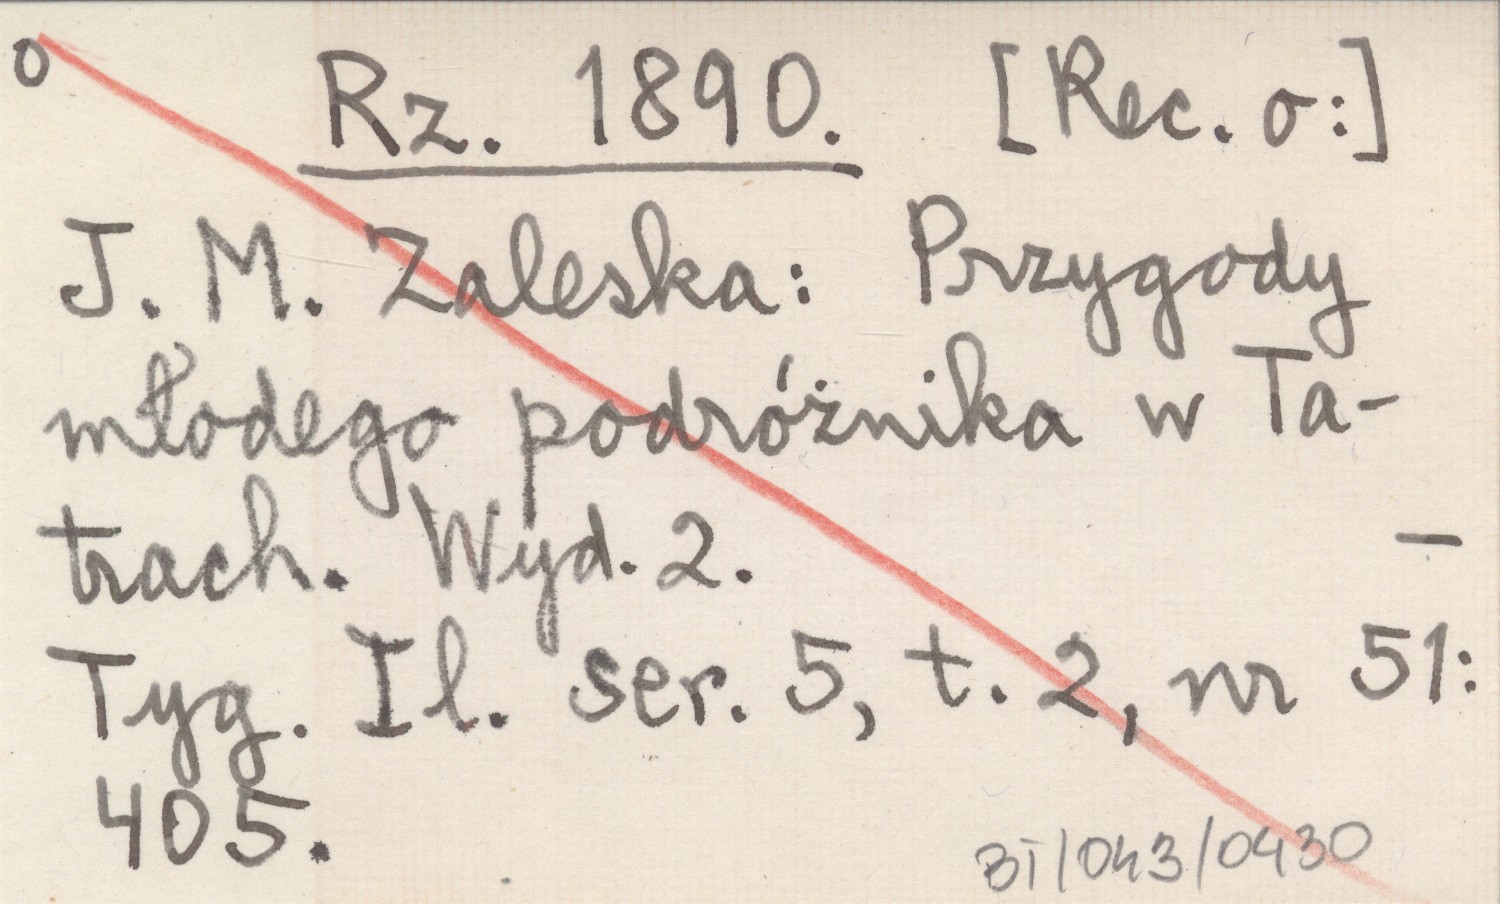 o
Rz. 1890. [Rec. o:]
J. M. Zaleska: Przygody
młodego podróżnika w Ta-
trach. Wyd. 2. —
Tyg. Il. ser. 5, t. 2, nr 51:
405.
BT/043/0430